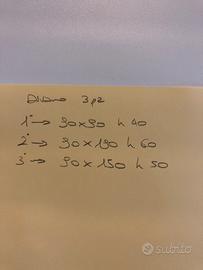 Divano 3 pz
1° → 90x90 h 40
2° → 90x190 h 60
3° → 90x150 h 50
subito